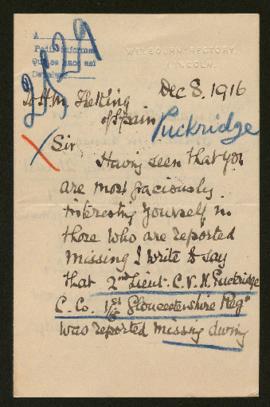 A
WELBOURN RECTORY,
LINCOLN.
2429
Dec 8. 1916
To H.M. The King
of Spain
Puckridge
Sir
Having seen that you
are most graciously
interesting yourself in
those who are reported
missing I write to say
that 2nd Lieut. C.V.N. Puckridge
C. Co. 1st/5 Gloucestershire Regt
was reported missing during